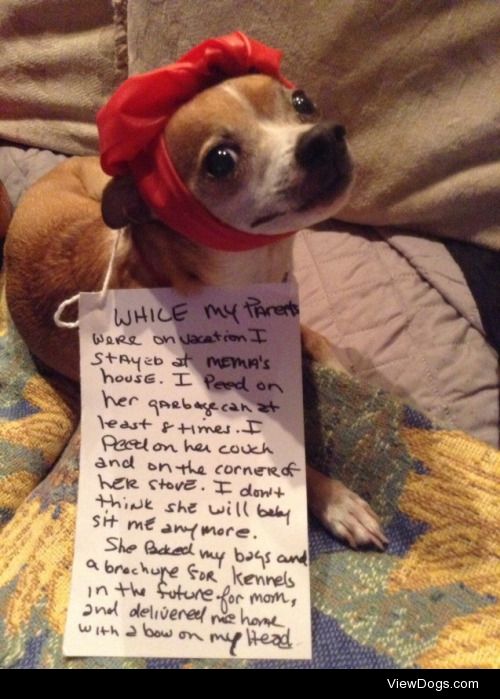 WHILE my Parents
were on vacation I
stayed at MEMA's
house. I Peed on
her garbage can at
least 8 times. I
Peed on her couch
and on the corner of
her stove. I don't
think she will baby
sit me anymore.
She Packed my bags and
a brochure for Kennels
in the future for mom,
and delivered me home
with a bow on my Head
ViewDogs.com